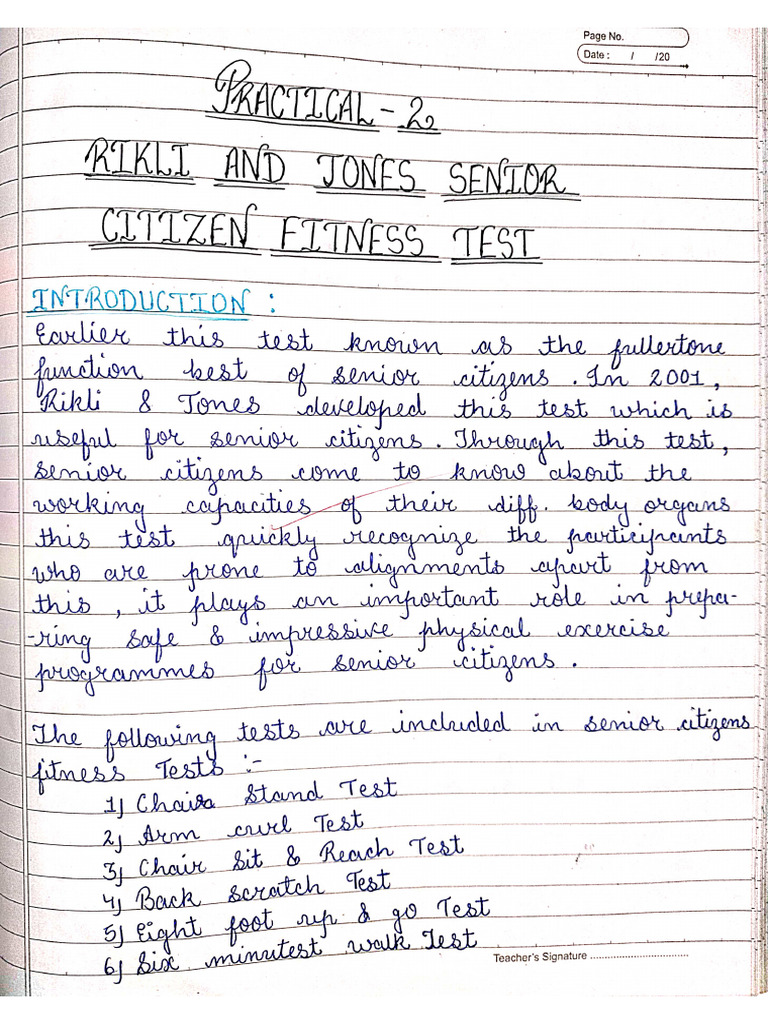 Page No.
Date : / /20
PRACTICAL - 2
RIKLI AND JONES SENIOR
CITIZEN FITNESS TEST
INTRODUCTION :
Earlier this test known as the fullertone
function best of senior citizens. In 2001,
Rikli & Jones developed this test which is
useful for senior citizens. Through this test,
senior citizens come to know about the
working capacities of their diff. body organs
this test quickly recognize the participants
who are prone to alignments apart from
this, it plays an important role in prepa-
-ring safe & impressive physical exercise
programmes for senior citizens.
The following tests are included in senior citizens
fitness Tests :-
1) Chair Stand Test
2) Arm curl Test
3) Chair Sit & Reach Test
4) Back scratch Test
5) Eight foot up & go Test
6) Six minutest walk Test
Teacher's Signature ..................................